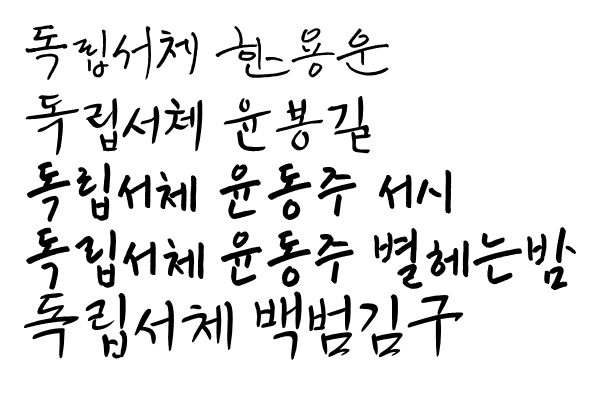 독립서체 한용운
독립서체 윤봉길
독립서체 윤동주 서시
독립서체 윤동주 별헤는밤
독립서체 백범김구